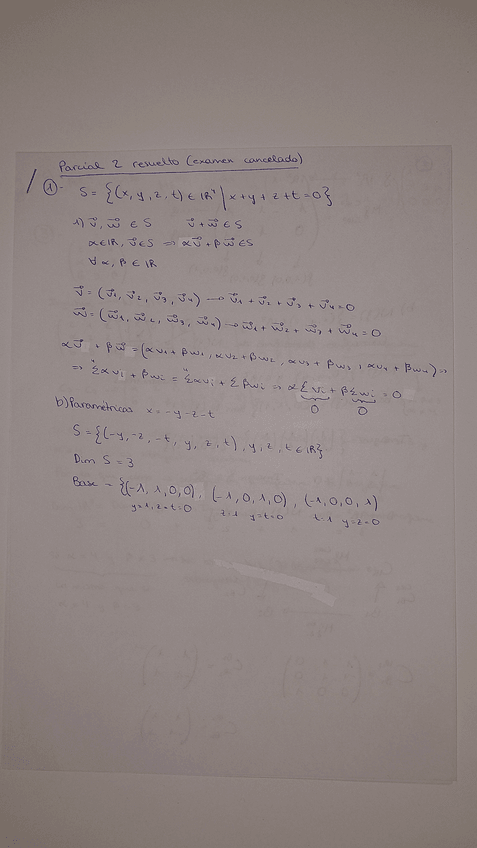 Parcial 2 resuelto (examen cancelado)
①- S = {(x, y, z, t) ∈ ℝ⁴ | x+y+z+t=0}
1) v⃗, w⃗ ∈ S    v⃗+w⃗ ∈ S
α∈ℝ, v⃗∈S ⇒ αv⃗+βw⃗∈S
∀ α, β ∈ ℝ
v⃗ = (v⃗₁, v⃗₂, v⃗₃, v⃗₄) → v⃗₁ + v⃗₂ + v⃗₃ + v⃗₄=0
w⃗ = (w⃗₁, w⃗₂, w⃗₃, w⃗₄) → w⃗₁ + w⃗₂ + w⃗₃ + w⃗₄=0
αv⃗ + βw⃗ = (αv₁+βw₁, αv₂+βw₂, αv₃+βw₃, αv₄+βw₄) ⇒
⇒ Σαvᵢ + βwᵢ = Σαvᵢ + Σβwᵢ ⇒ αΣvᵢ + βΣwᵢ = 0
0 0
b) Paramétricas x=-y-z-t
S={(-y,-z,-t, y, z, t), y, z, t ∈ ℝ}
Dim S=3
Base = {(-1, 1, 0, 0), (-1, 0, 1, 0), (-1, 0, 0, 1)
y=1, z=t=0 z=1 y=t=0 t=1 y=z=0